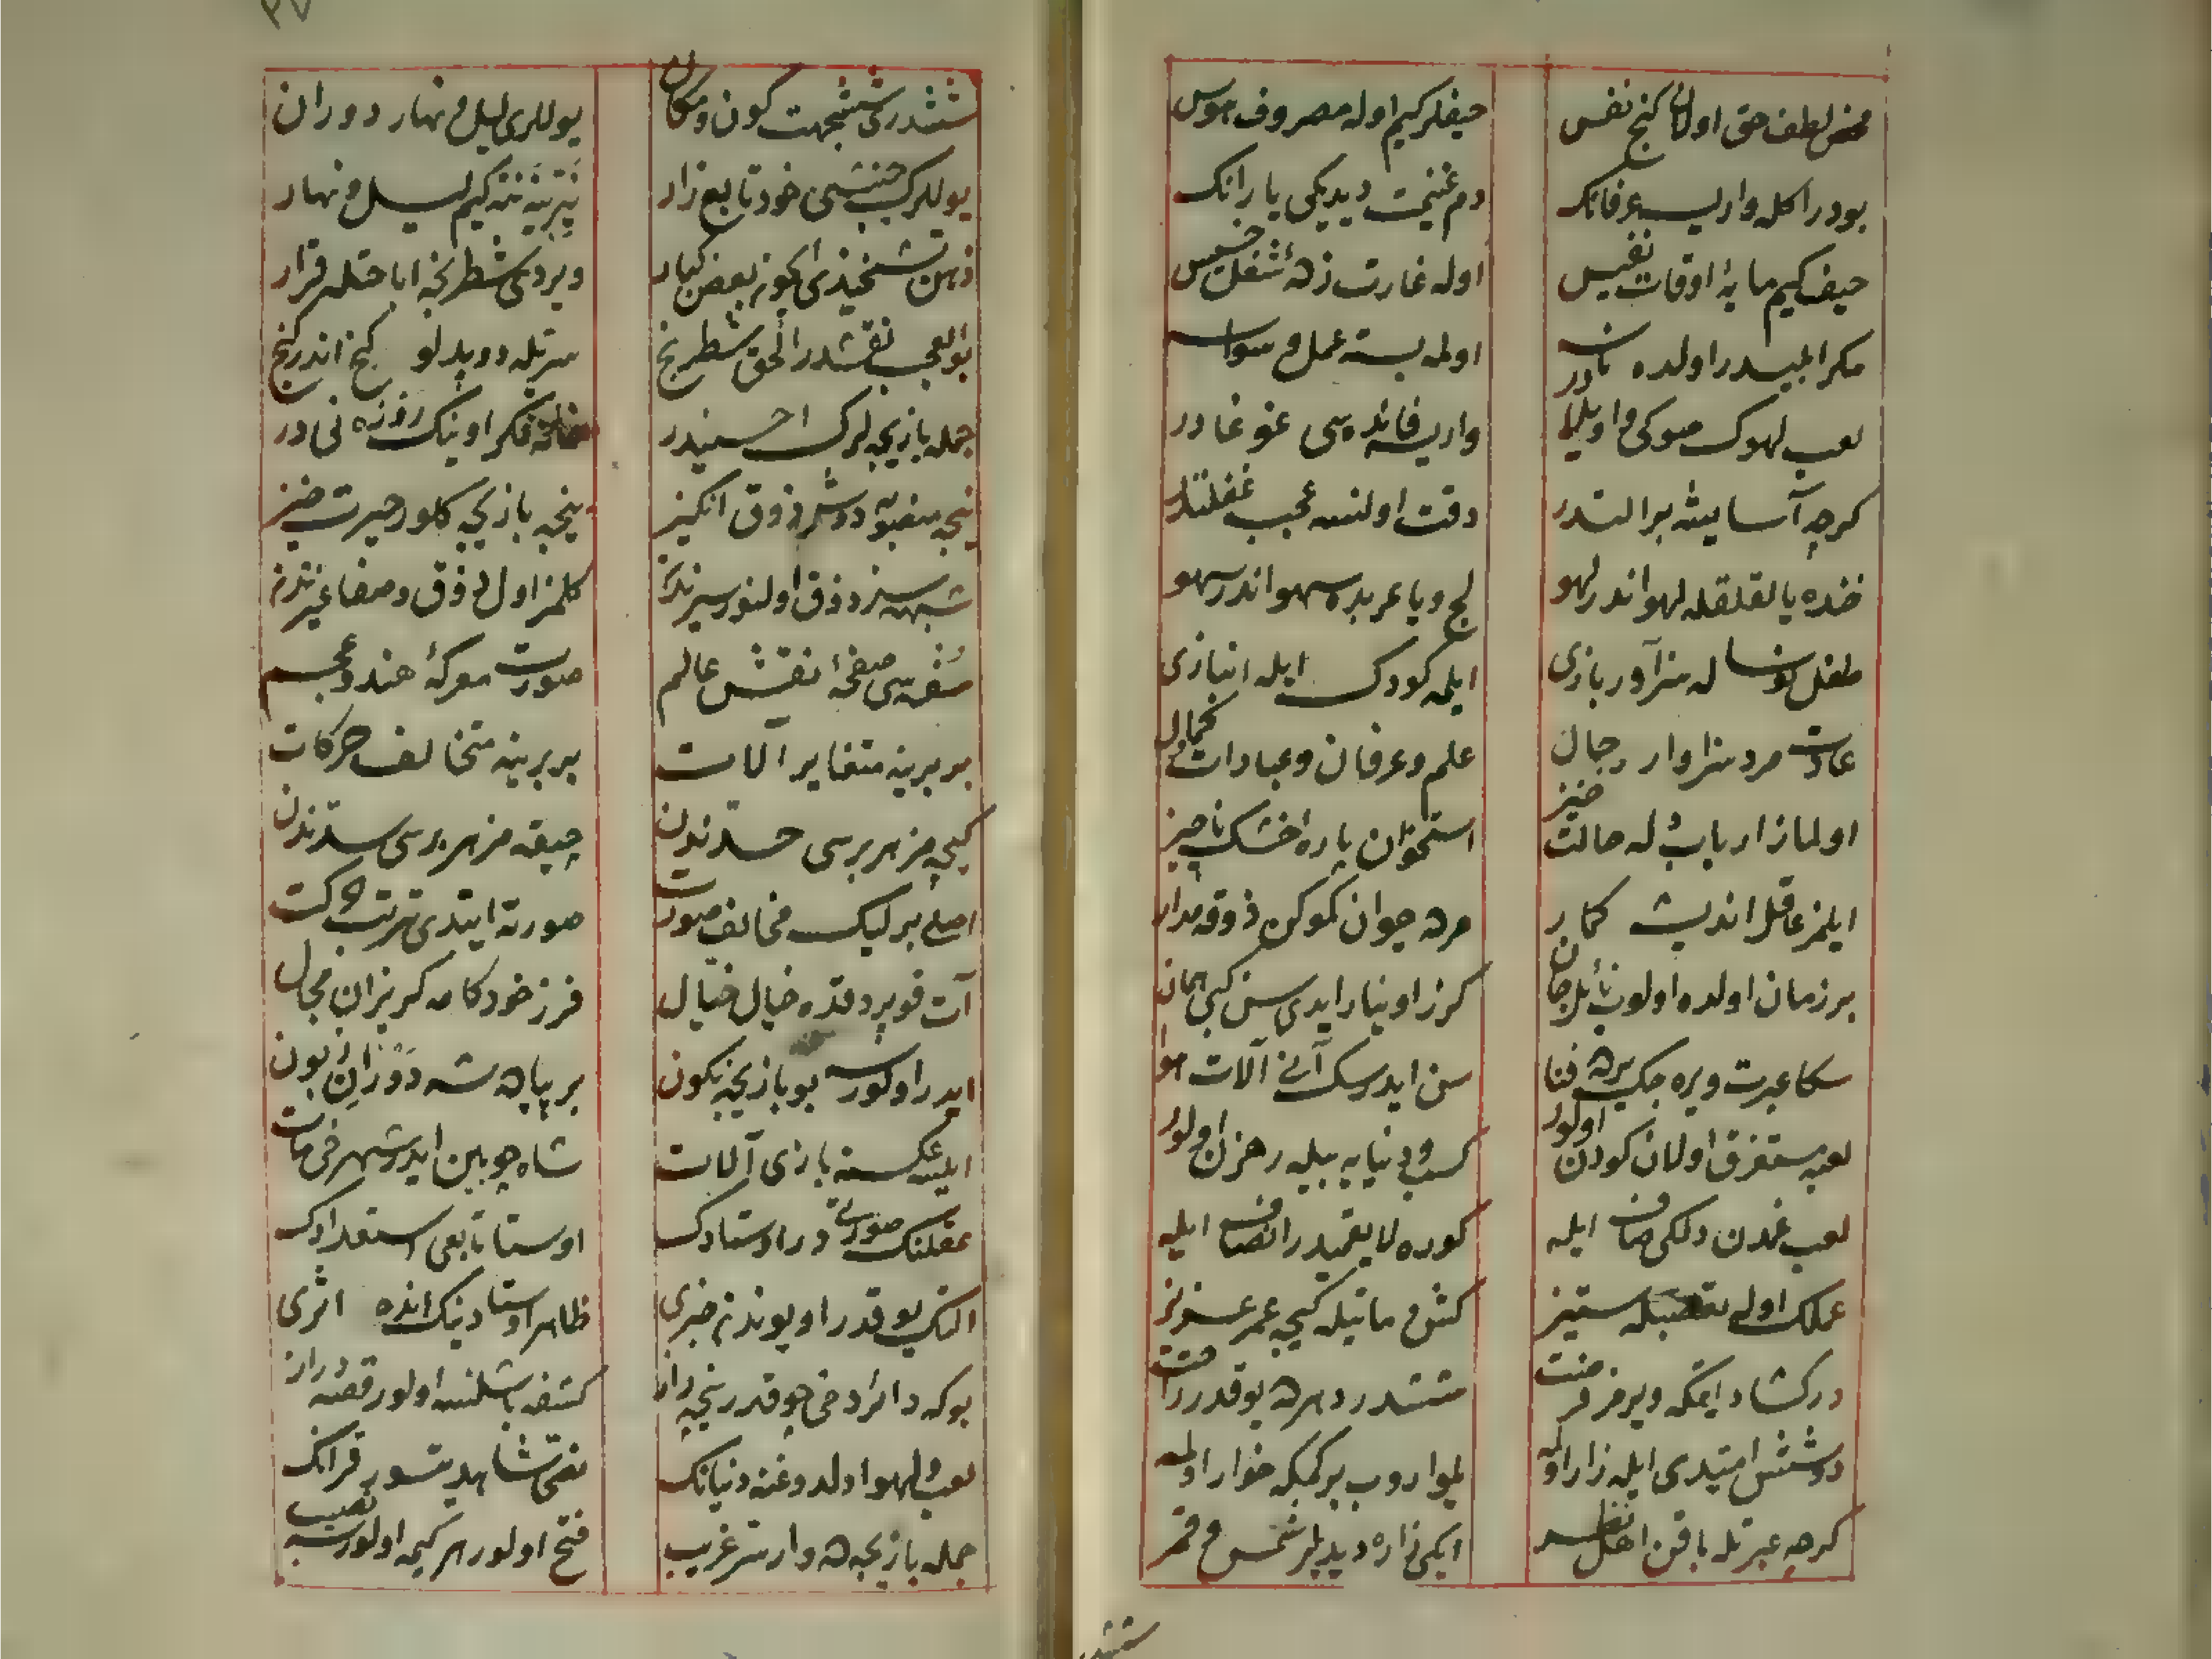 محض لطف حق اولان کنج نفس
حیفلر کیم اوله مصروف هوس
بودر اکله وار ایسه عرفانک
دم غنیمت دیدیکی یارانک
حیف کیم مایهٔ اوقات نفیس
اوله غارت زدهٔ شغل خسیس
مکر ابلیسدر اولده
اوله بسته عمل
لعب لهوک صوکی واویلادر
وار ایسه فائده سی غوغادر
کرچه آسایشه بر التدر
دقت اولنسه عجب غفلتدر
خنده یا لقلقله لهو اندر لهو
لج و یا عربده سهو اندر سهو
طفل کوساله سزاور بازی
ایله کودک ایله انبازی
عادت مرد سزاوار رجال
علم و عرفان و عبادات و کمال
اولماز ارباب دله حالت خیز
استخوان پاره خشک ناچیز
ایلمز عاقل اندیشه کمار
مرده حیوان کموکن ذوقه مدار
بر زمان اولده اولوب نائل جان
کزر اوینار ایدی سن کبی همان
سکا عبرت ویره جک یرده فنا
سن ایدرسک آنی آلات هوا
لعبه مستغرق اولان کودن اولور
کسب دنیایه بیله رهزن اولور
لعب غمدن دلکی صاف ایله
کوره لایقمیدر انصاف ایله
عملک اوله ستیز
کش و ماتیله کیچه عمر عزیز
در کشاد ایتمکه ویرمز فرصت
ششدر دهرده یوقدر راحت
دوشش امیدی ایله زار اولمه
یلوا روب بر کمیکه خوار اولمه
کرچه عبرتله باقن اهل نظر
ایکی زاره دیدیلر شمس و قمر
ششدری ششجهت کون و مکان
یوللری لیل و نهار دوران
یوللرک جنبشی خود تابع زار
نته کیم لیل و نهار
ذهن تشخیذی ایچون بعض کبار
ویردی شطرنجه اباحتله قرار
بو العجب نقشدر الحق شطرنج
سر بله دوپدلو کنج اندر کنج
جمله بازیچه لرک احسنیدر
فکر اونک روزنیدر
نیچه منصوبه دوشر ذوق انکیز
نیچه بازیچه کلور حیرت خیز
شبهه سز ذوق اولنور سیرندن
کلمز اول ذوق و صفا غیرندن
سفره سی صفحهٔ نقش عالم
صورت معرکهٔ هند و عجم
بر برینه متغایر آلات
بر برینه متخالف حرکات
کیچه مز هر برسی حدندن
چیقه مز هر برسی سدندن
اصلی بر لیک مخالف صورت
صورته ایتدی ترتب حرکت
آت قوپردقده خیال خیال
فرز خودکامه کریزان مجال
ایدر اوکورسه بو بازیچه نکون
بر پیاده شه دورانی زبون
ایلسه عکسنه بازی آلات
شاه چوبین ایدر شهرخی مات
عقلنک صورتی در اوستادک
اوستا تابعی استعدادک
النک یوقدر اویوندن خبری
ظاهر اوستادینک انده اثری
بوکه دائر دخی چوقدر نیچه راز
کشفه باشلنسه اولور قصه دراز
لعب و لهو اولدوغنه دنیانک
نصی شاهد یتشور قرآنک
جمله بازیچه ده وار سر غریب
فتح اولور هر کیمه اولورسه نصیب
ششدر
٣٧